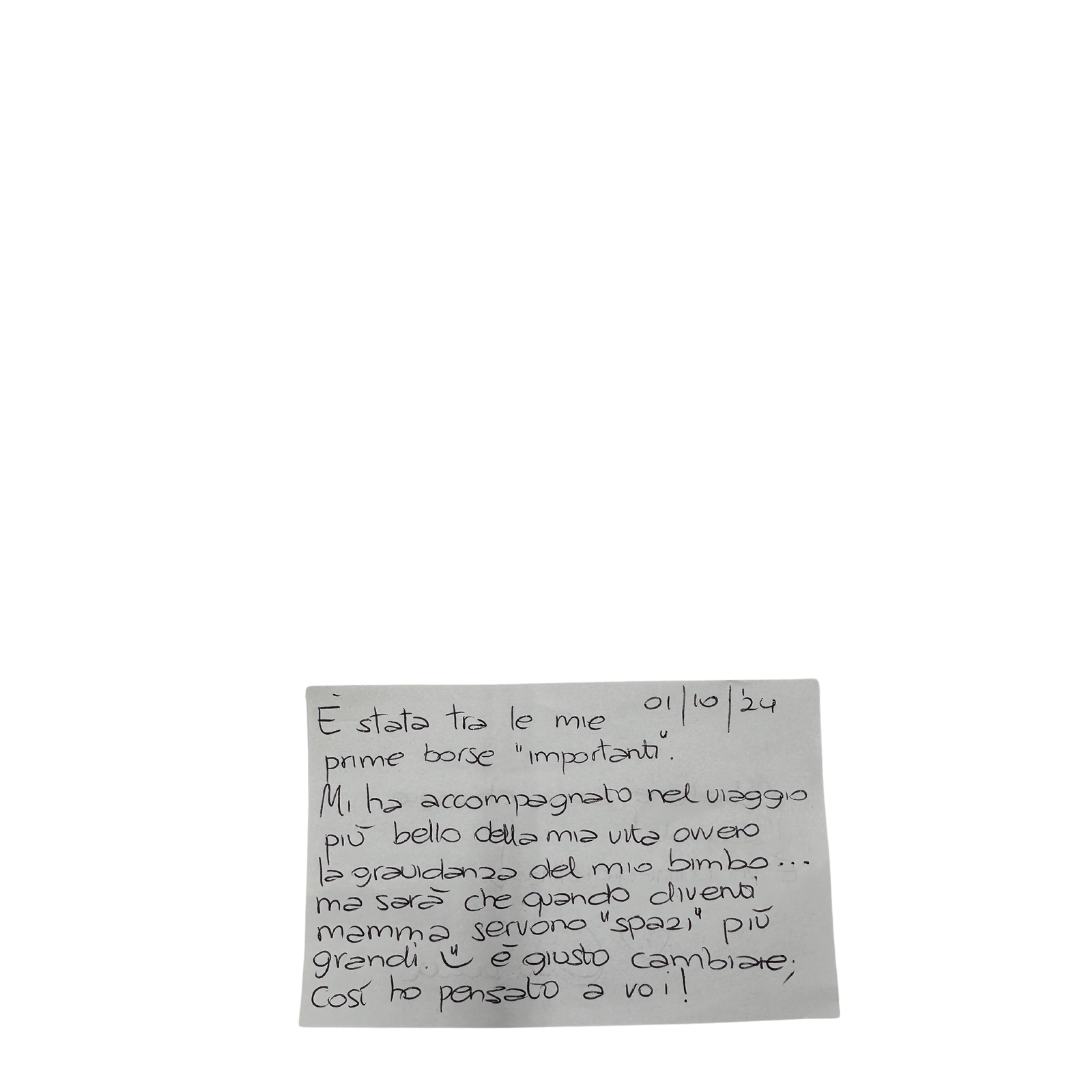 È stata tra le mie 01/10/'24
prime borse "importanti".
Mi ha accompagnato nel viaggio
più bello della mia vita ovvero
la gravidanza del mio bimbo...
ma sarà che quando diventi
mamma servono "spazi" più
grandi. è giusto cambiare;
Così ho pensato a voi!